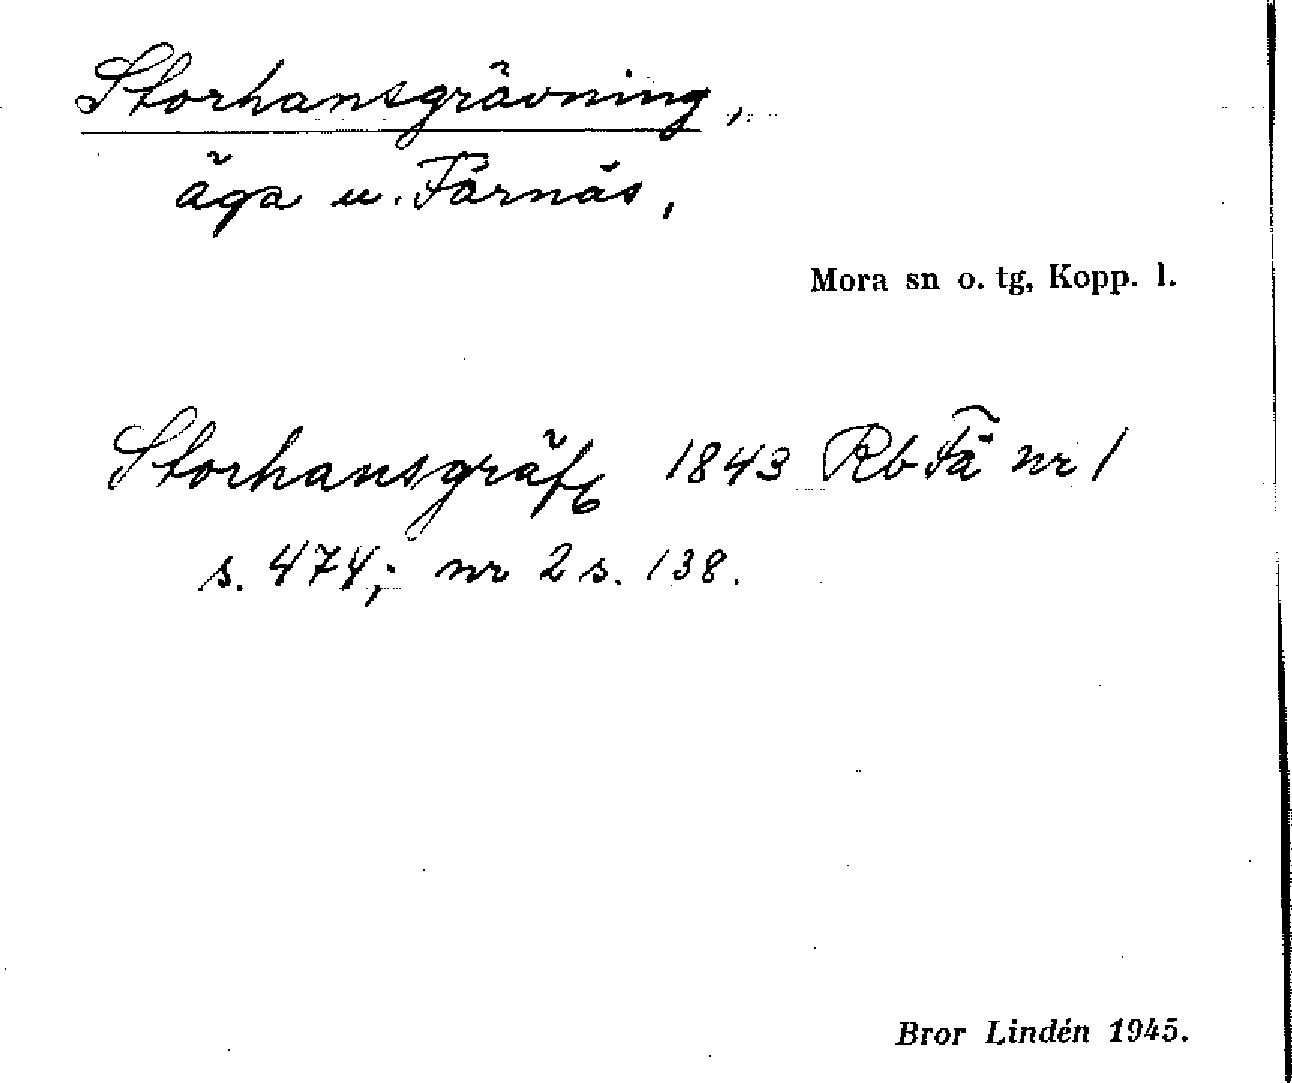 Storhansgrävning,
äga u. Färnäs,
Mora sn o. tg, Kopp. l.
Storhansgräfg 1843 Rb Fä nr 1
s. 474; nr 2 s. 138.
Bror Lindén 1945.